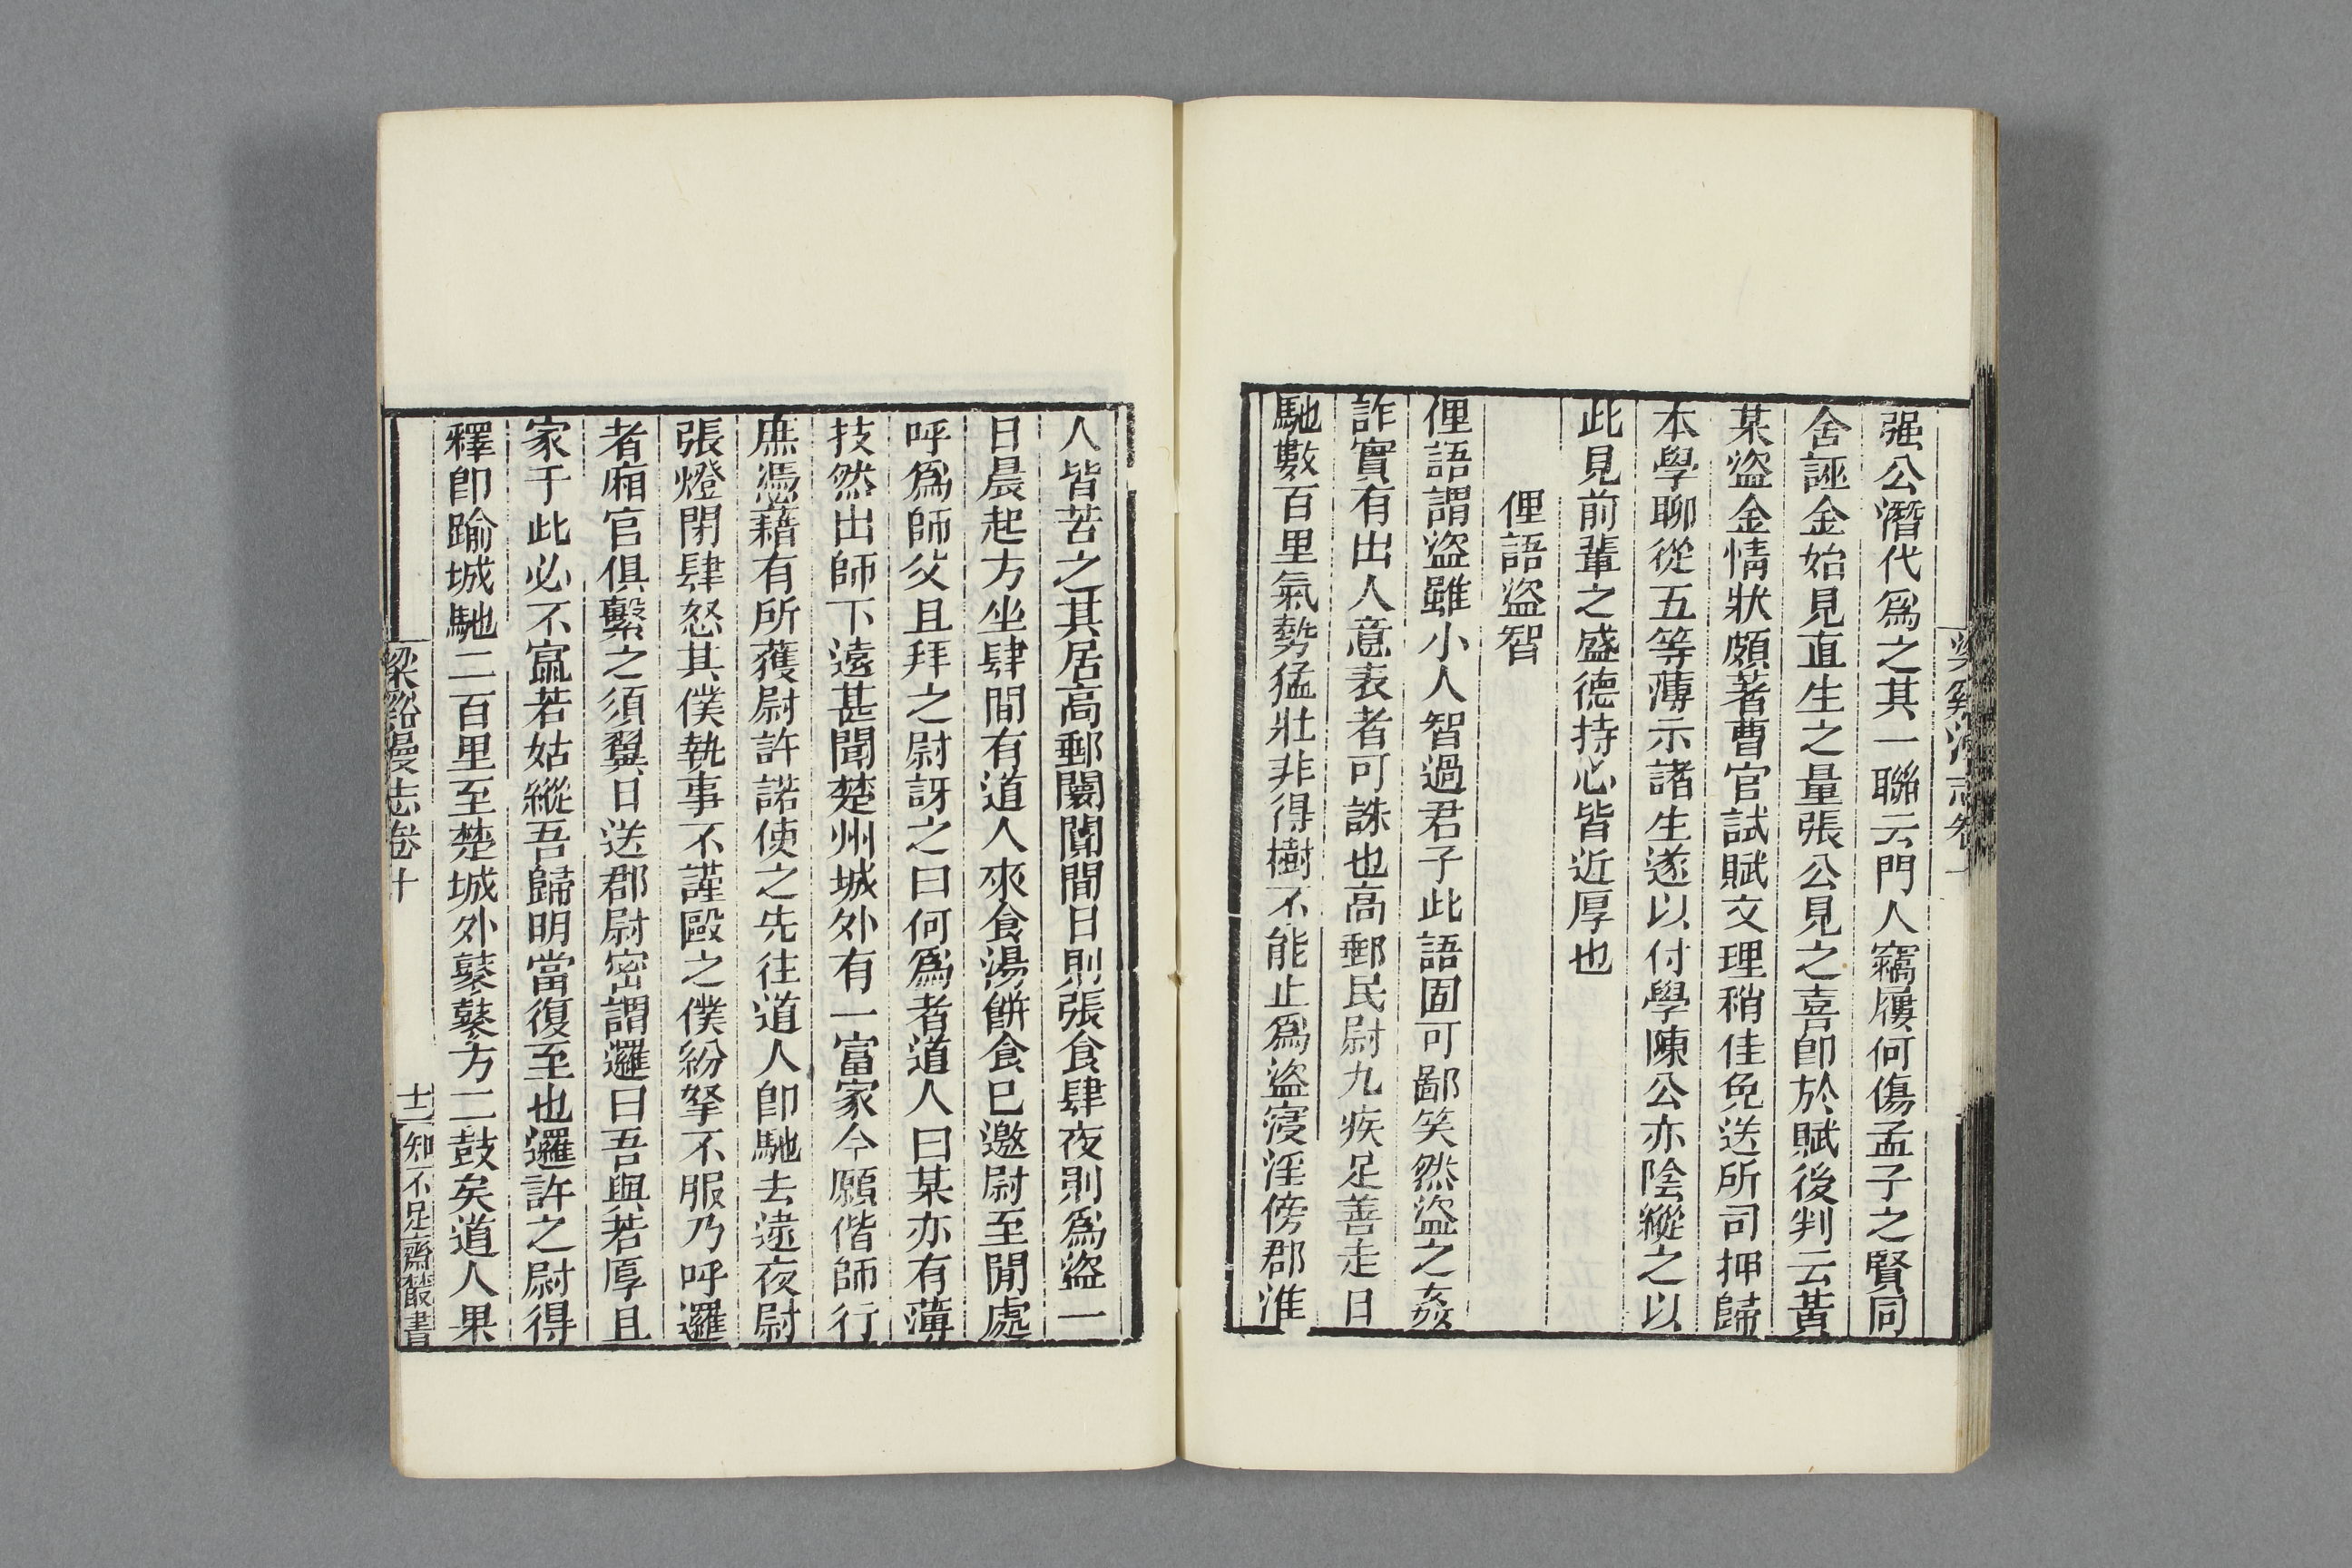 强公潛代爲之其一聯云門人竊屨何傷孟子之賢同
舍誣金始見直生之量張公見之喜卽於賦後判云黃
某盜金情狀頗著曹官試賦文理稍佳免送所司押歸
本學聊從五等薄示諸生遂以付學陳公亦陰縱之以
此見前輩之盛德持心皆近厚也
俚語盜智
俚語謂盜雖小人智過君子此語固可鄙笑然盜之姦
詐實有出人意表者可誅也高郵民尉九疾足善走日
馳數百里氣勢猛壯非得樹不能止爲盜寖淫傍郡淮
人皆苦之其居高郵闤闠間日則張食肆夜則爲盜一
日晨起方坐肆間有道人來食湯餅食巳邀尉至閒處
呼爲師父且拜之尉訝之曰何爲者道人曰某亦有薄
技然出師下遠甚聞楚州城外有一富家今願偕師行
庶憑藉有所獲尉許諾使之先往道人卽馳去遠夜尉
張燈閉肆怒其僕執事不謹毆之僕紛拏不服乃呼邏
者廂官俱繫之須翼日送郡尉密謂邏曰吾與若厚且
家于此必不竄若姑縱吾歸明當復至也邏許之尉得
釋卽踰城馳二百里至楚城外鼕鼕方二鼓矣道人果
梁谿漫志卷十
十二
知不足齋叢書